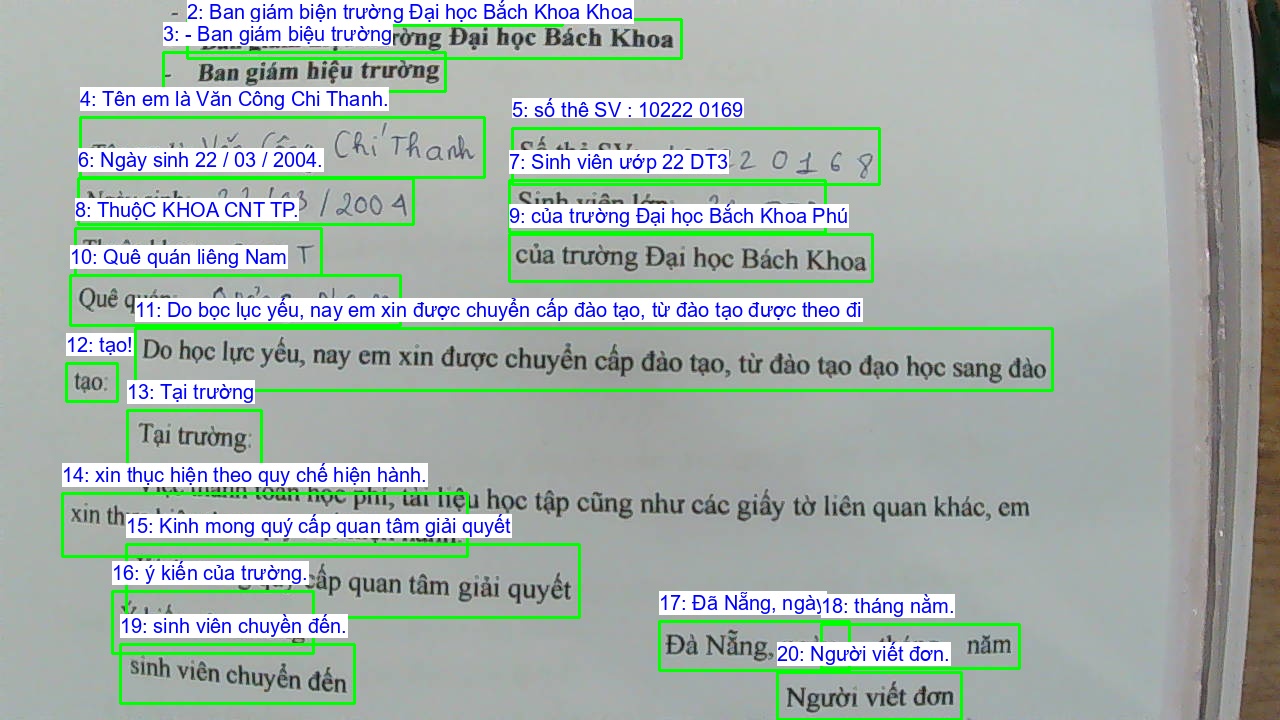 2: Ban giám biện trường Đại học Bắch Khoa Khoa
3: - Ban giám biệu trường
trường Đại học Bách Khoa
- Ban giám hiệu trường
4: Tên em là Văn Công Chi Thanh.
5: số thê SV : 10222 0169
Chí Thanh
2 0 1 6 8
6: Ngày sinh 22 / 03 / 2004.
7: Sinh viên ướp 22 DT3
/ 2004
8: ThuộC KHOA CNT TP.
9: của trường Đại học Bắch Khoa Phú
T
của trường Đại học Bách Khoa
10: Quê quán liêng Nam
Quê quán:
11: Do bọc lục yếu, nay em xin được chuyển cấp đào tạo, từ đào tạo được theo đi
12: tạo!
Do học lực yếu, nay em xin được chuyển cấp đào tạo, từ đào tạo đạo học sang đào
tạo:
13: Tại trường
Tại trường:
14: xin thục hiện theo quy chế hiện hành.
học phí, tài liệu học tập cũng như các giấy tờ liên quan khác, em
xin
15: Kinh mong quý cấp quan tâm giải quyết
cấp quan tâm giải quyết
16: ý kiến của trường.
17: Đã Nẵng, ngày
18: tháng nằm.
19: sinh viên chuyền đến.
Đà Nẵng, năm
20: Người viết đơn.
sinh viên chuyển đến
Người viết đơn